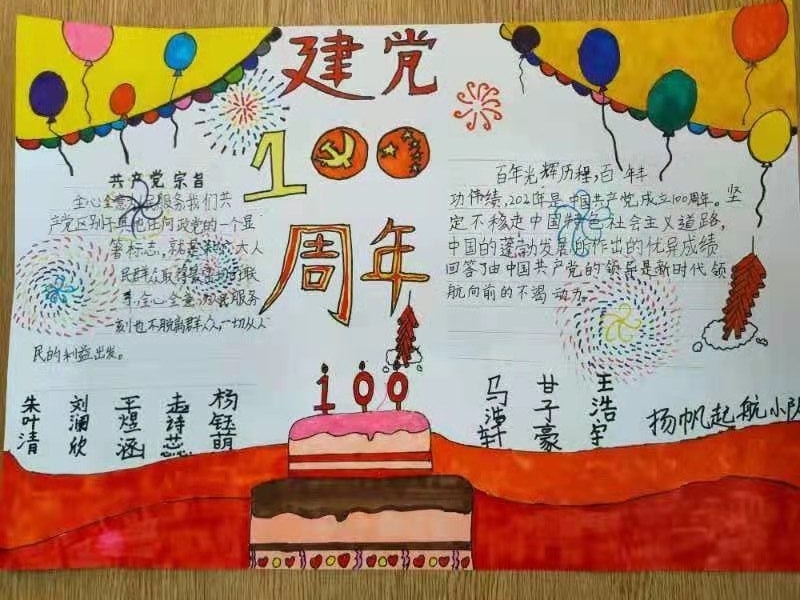 建党
100
周年
共产党宗旨
全心全意为人民服务我们共
产党区别于其他任何政党的一个显
著标志,就是和广大人
民群众取得最密切的联
系,全心全意为人民服务
一刻也不脱离群众,一切从人
民的利益出发。
百年光辉历程,百年丰
功伟绩,2021年是中国共产党成立100周年。坚
定不移走中国特色社会主义道路,
中国的蓬勃发展所作出的优异成绩
回答了由中国共产党的领导是新时代领
航向前的不竭动力。
100
朱叶清
刘澜欣
王煜涵
诗蕊
杨钰萌
马浩轩
甘子豪
王浩宇
扬帆起航小队